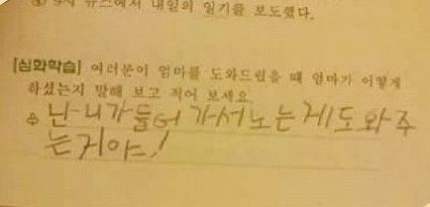 ④ 9시 뉴스에서 내일의 일기를 보도했다.
[심화학습] 여러분이 엄마를 도와드렸을 때 엄마가 어떻게
하셨는지 말해 보고 적어 보세요.
난 니가 들어가서 노는게 도와주
는거야!